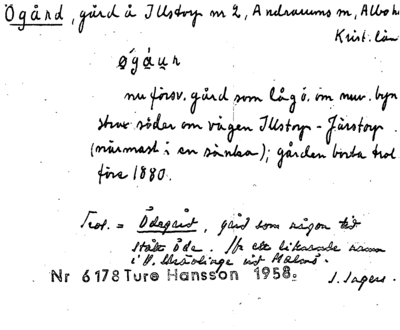 Ogård, gård å Illstorp nr 2, Andrarums sn, Albo h
Krist. län
øgáun
nu försv. gård som låg ö. om nuv. byn
strax söder om vägen Illstorp - Järstorp.
(närmast i en sänka); gården borta trol.
före 1880.
Trol. = Ödegård, gård som någon tid
stått öde. Jfr ett liknande namn
i V. vid Malmö.
Nr 6178 Ture Hansson 1958.